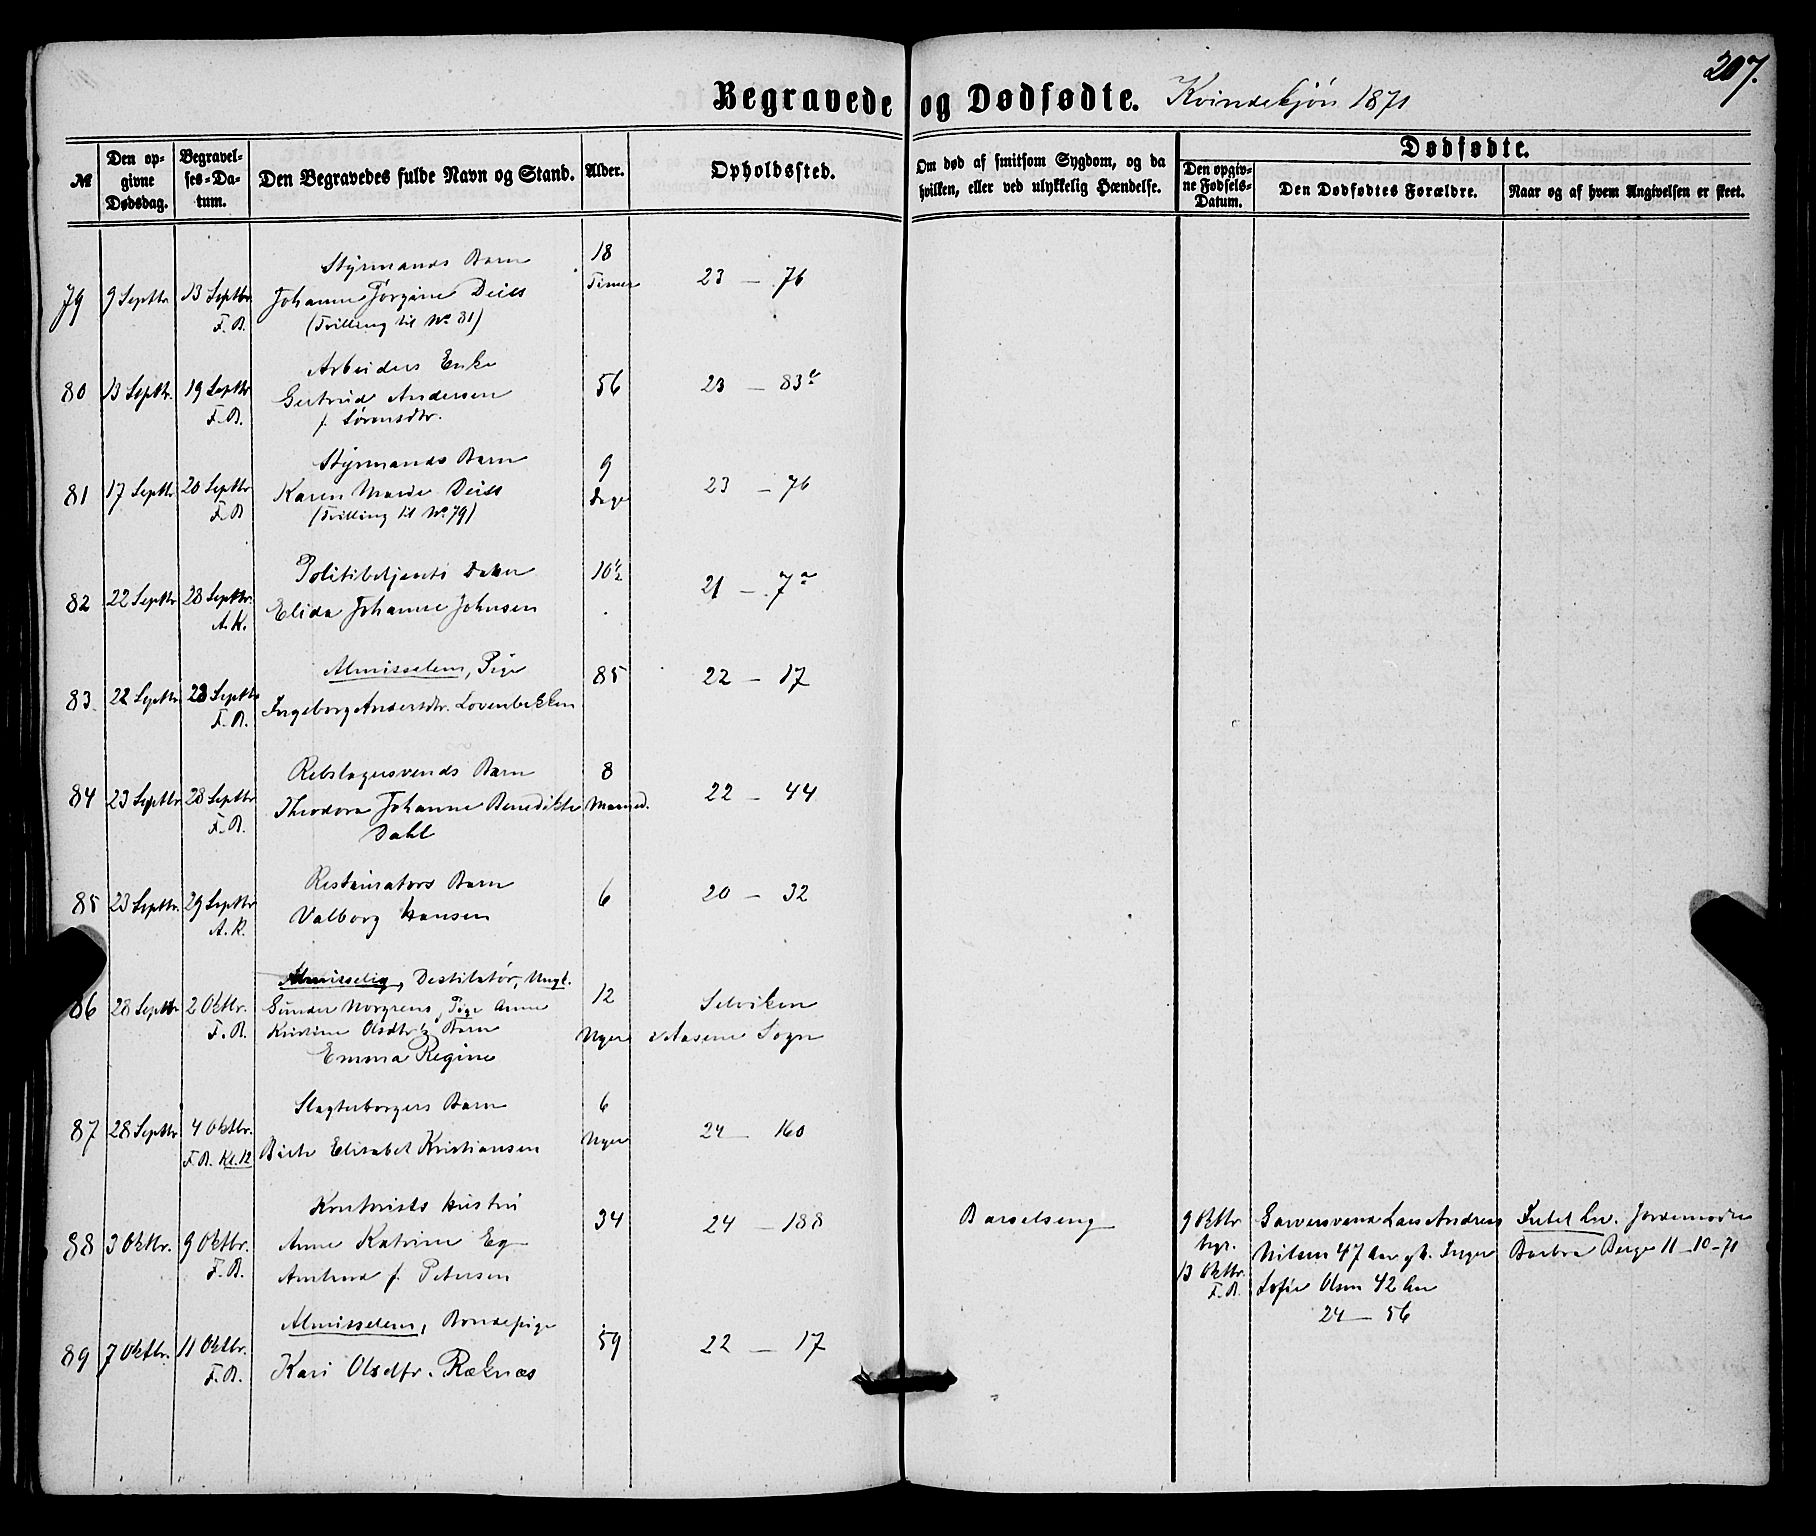 207.
Begravede og Dødfødte. Kvindekjön 1871
№
Den opgivne Dødsdag.
Begravelses-Datum.
Den Begravedes fulde Navn og Stand.
Alder.
Opholdssted.
Om død af smitsom Sygdom, og da hvilken, eller ved ulykkelig Hændelse.
Dødfødte.
Den opgivne Fødsels-Datum.
Den Dødfødtes Forældre.
Naar og af hvem Angivelsen er skeet.
Styrmands Barn 18
79 9 Septbr. 13 Septbr Johanne Jørgine Timer 23 — 76
F. B. (Tvilling til No. 81)
Arbeiders Enke
80 13 Septbr. 19 Septbr Gertrud Andersen 56 23 — 83
F. B. f. Sørensdtr.
Styrmands Barn 9
81 17 Septbr 20 Septbr Karen Marie Dage 23 — 76
F. B (Tvilling til No. 79)
Politibetjents Datter 10½
82 22 Septbr 28 Septbr. Elida Johanne Johnsen 21 — 7a
A. K.
Almisselem, Pige 85 22 — 17
83. 22 Septbr 28 Septbr Ingeborg Andersdtr. Lovenbekken
F. B.
Rebslagersvends Barn 8
84 23 Septbr 28 Septbr Theodora Johanne Benedikte Maaned. 22 — 44
F. B. Dahl
Restaurators Barn
85 23 Septbr. 29 Septbr Valborg Hansen 6 20 — 32
A. K.
Almisselig, Destilatør, Ungk.
86 28 Septbr 2 Oktbr. Gunder Norgrens, Pige Anne 12 Selviken
F. B. Kristine Olsdtrs Barn Uger i Aasene Sogn
Emma Regine
Slagterborgers Barn 6
87 28 Septbr 4 Oktbr. Elisabet Kristiansen Uger 24 — 160
F. B. Kl. 12
Kontorists Hustru
88 3 Oktbr. 9 Oktbr. Anne Katrine Eg 34 24 — 188 Barselseng
F. B. f. Petersen
9 Oktbr
begr.
13 Oktbr.
F. B.
Garversvend Lars Andreas
Nilsen 47 Aar gb. Inger
Sofie Olsen 42 Aar
24 — 56
Jordemoder
Barbra Berge 11–10–71
Almisselem, Bondepige
89 7 Oktbr. 11 Oktbr. Kari Olsdtr. Ræknæs 59 22 — 17
F. B.